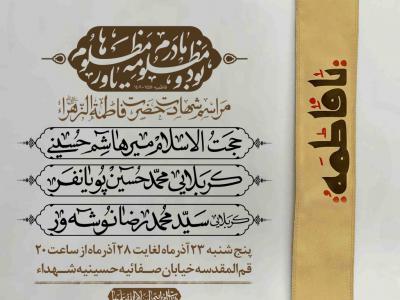 مراسم شهادت حضرت فاطمة الزهرا
حجت الاسلام میرهاشم حسینی
کربلایی محمد حسین پویانفر
کربلایی سید محمد رضا نوشه ور
پنج شنبه ۲۳ آذر ماه لغایت ۲۸ آذر ماه از ساعت ۲۰
قم المقدسه خیابان صفائیه حسینیه شهداء
یا فاطمه